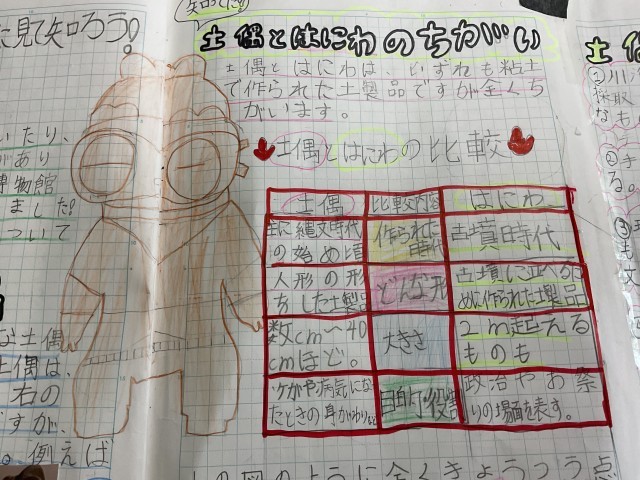 に見て知ろう!
いたり、
があり
博物館
ました!
ついて
な土偶
土偶は、
右の
すが、
。例えば
土偶とはにわのちがい
土偶とはにわは、いずれも粘土
で作られた土製品ですが全くち
がいます。
土偶とはにわの比較
土偶 比較内容 はにわ
主に縄文時代の始め頃 作られた時代 古墳時代
人形の形をした土製品 どんな形 古墳に並べるために作られた土製品
数cm〜40cmほど。 大きさ 2m超えるものも
ケガや病気になったときの身がわりなど 目的・役割 政治やお祭りの場面を表す。
の図のように全くきょうつう点
土偶
①川
採取
なもの
②手
る。
③